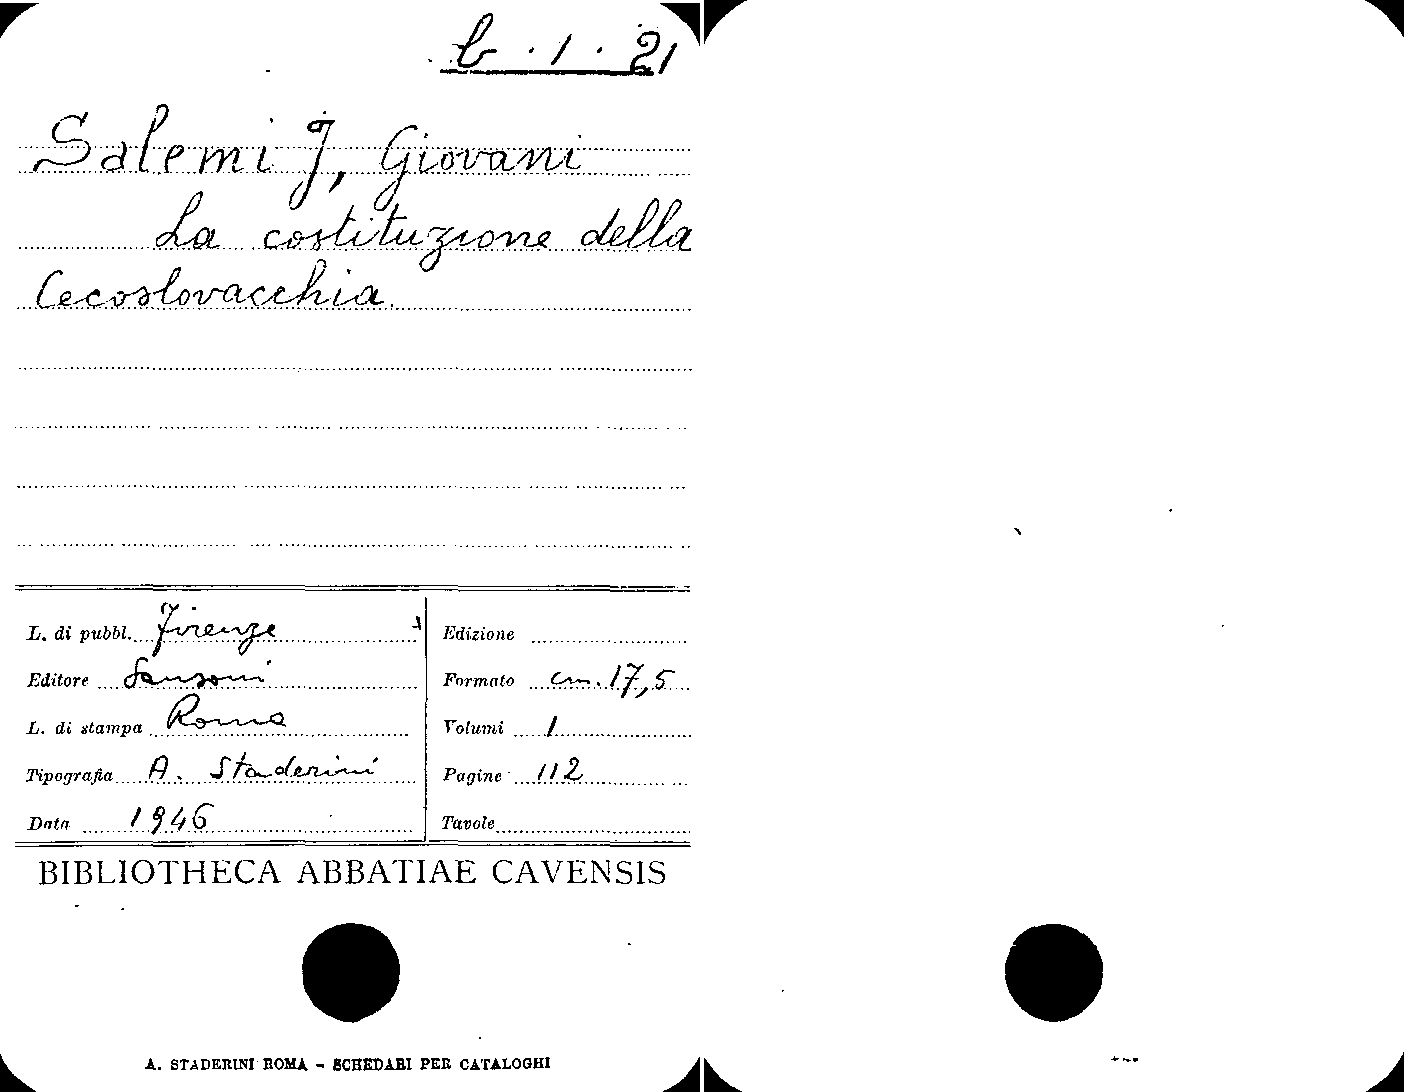 b. 1. 21
Salemi J, Giovani
La costituzione della
Cecoslovacchia.
L. di pubbl. Firenze
Editore Sansoni
L. di stampa Roma
Tipografia A. Staderini
Data 1946
Edizione
Formato cm. 17,5
Volumi 1
Pagine 112
Tavole
BIBLIOTHECA ABBATIAE CAVENSIS
A. STADERINI ROMA - SCHEDARI PER CATALOGHI